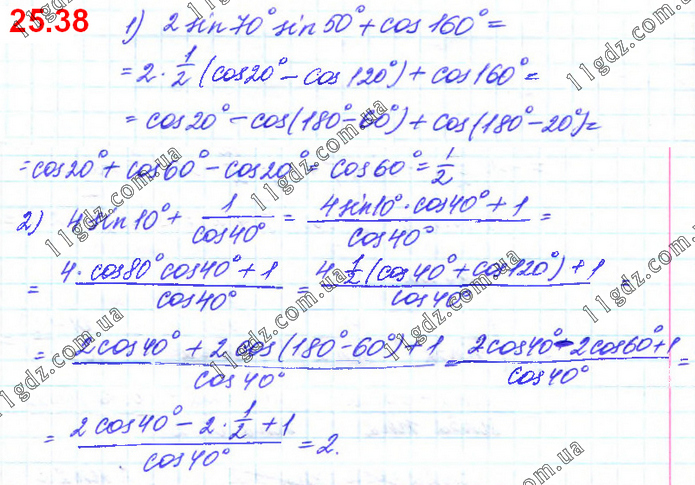 25.38
1) 2 sin 70° sin 50° + cos 160° =
= 2 · 1/2 (cos 20° − cos 120°) + cos 160° =
= cos 20° − cos(180° − 60°) + cos(180° − 20°) =
= cos 20° + cos 60° − cos 20° = cos 60° = 1/2
2) 4 sin 10° + 1/cos 40° = (4 sin 10° · cos 40° + 1)/cos 40° =
= (4 · cos 80° cos 40° + 1)/cos 40° = (4 1/2 (cos 40° + cos 120°) + 1)/cos 40° =
= (2 cos 40° + 2 cos(180° − 60°) + 1)/cos 40° = (2 cos 40° − 2 cos 60° + 1)/cos 40° =
= (2 cos 40° − 2 · 1/2 + 1)/cos 40° = 2.
11gdz.com.ua